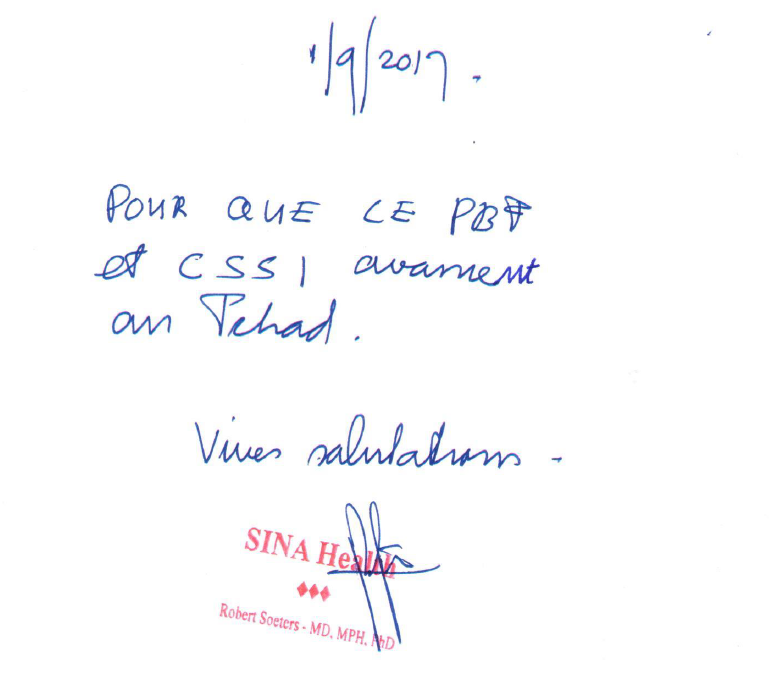 1/9/2017.
POUR QUE LE PBF
et CSSI avancent
au Tchad.
Vives salutations -
SINA Health
Robert Soeters - MD, MPH, PhD